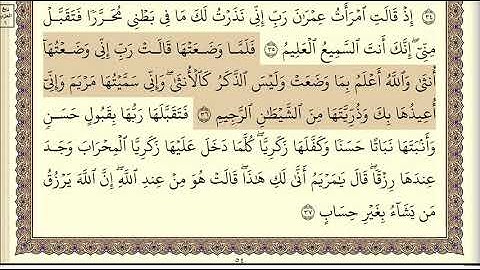 ٣٤ إِذْ قَالَتِ ٱمْرَأَتُ عِمْرَٰنَ رَبِّ إِنِّى نَذَرْتُ لَكَ مَا فِى بَطْنِى مُحَرَّرًا فَتَقَبَّلْ
مِنِّىٓ ۖ إِنَّكَ أَنتَ ٱلسَّمِيعُ ٱلْعَلِيمُ ٣٥ فَلَمَّا وَضَعَتْهَا قَالَتْ رَبِّ إِنِّى وَضَعْتُهَآ
أُنثَىٰ وَٱللَّهُ أَعْلَمُ بِمَا وَضَعَتْ وَلَيْسَ ٱلذَّكَرُ كَٱلْأُنثَىٰ ۖ وَإِنِّى سَمَّيْتُهَا مَرْيَمَ وَإِنِّىٓ
أُعِيذُهَا بِكَ وَذُرِّيَّتَهَا مِنَ ٱلشَّيْطَٰنِ ٱلرَّجِيمِ ٣٦ فَتَقَبَّلَهَا رَبُّهَا بِقَبُولٍ حَسَنٍ
وَأَنۢبَتَهَا نَبَاتًا حَسَنًا وَكَفَّلَهَا زَكَرِيَّا ۖ كُلَّمَا دَخَلَ عَلَيْهَا زَكَرِيَّا ٱلْمِحْرَابَ وَجَدَ
عِندَهَا رِزْقًا ۖ قَالَ يَٰمَرْيَمُ أَنَّىٰ لَكِ هَٰذَا ۖ قَالَتْ هُوَ مِنْ عِندِ ٱللَّهِ ۖ إِنَّ ٱللَّهَ يَرْزُقُ
مَن يَشَآءُ بِغَيْرِ حِسَابٍ ٣٧
٥٤